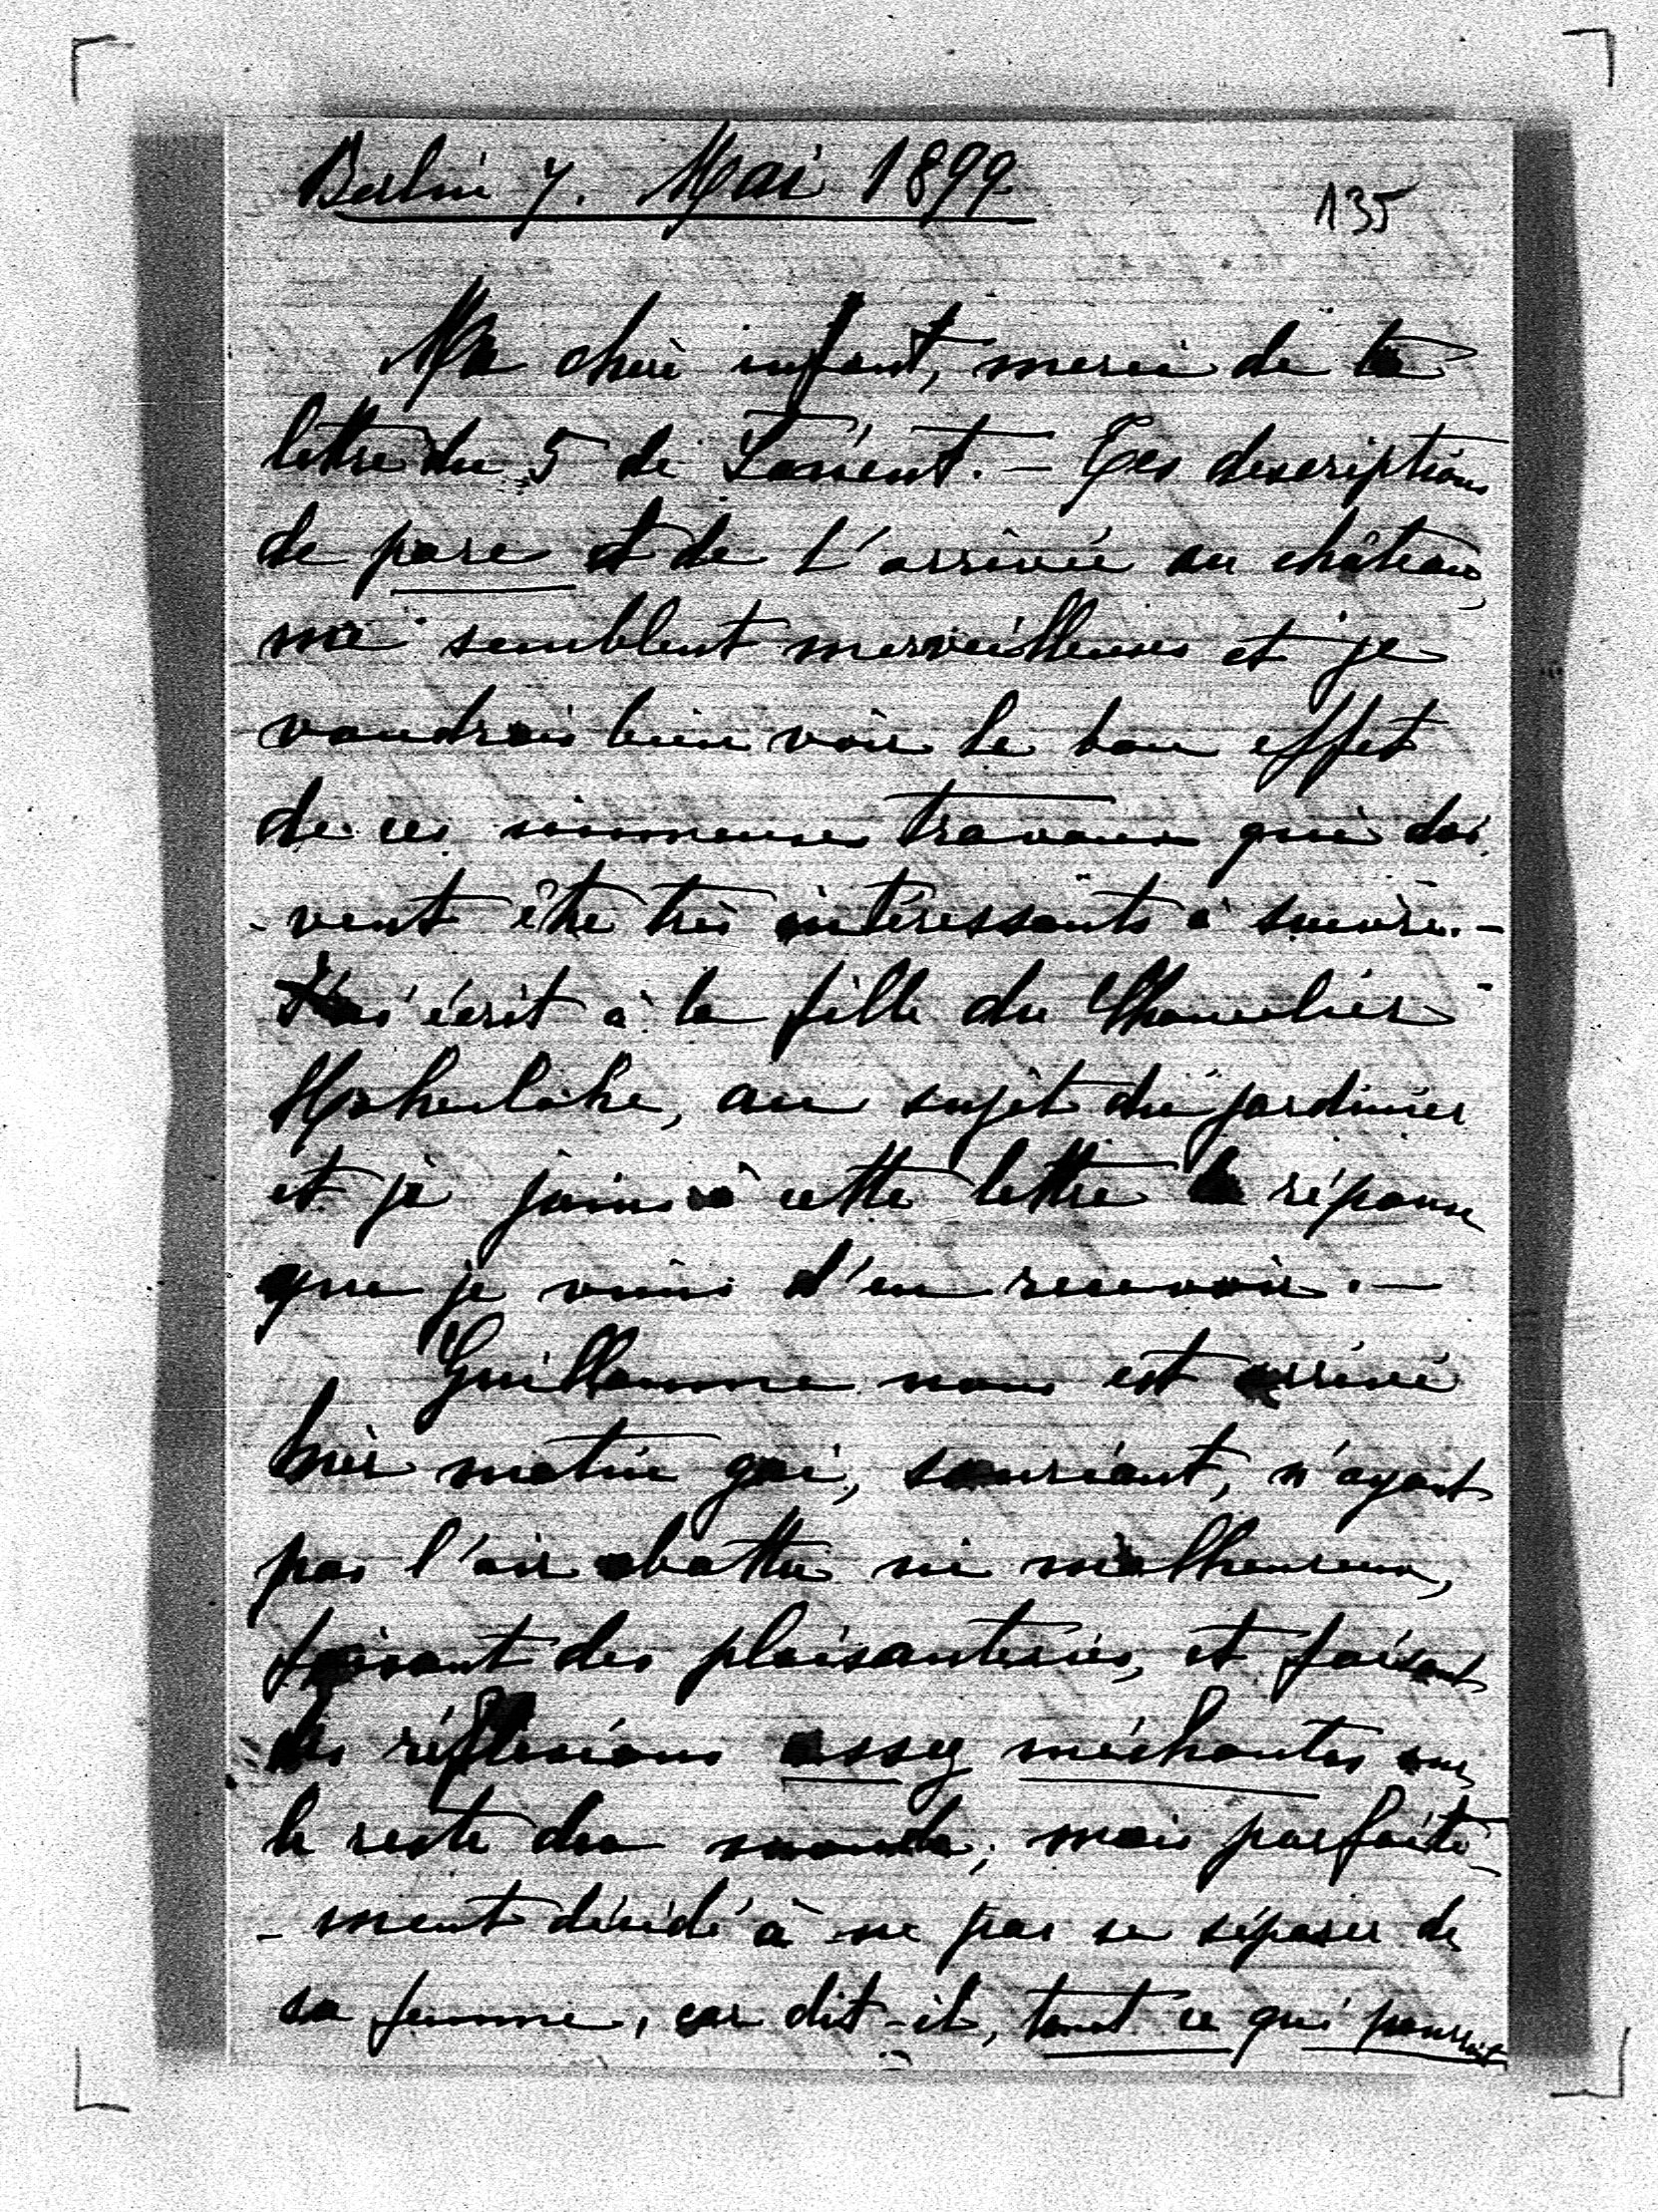 Berlin 7. Mai 1899
135
Ma chère enfant, merci de ta
lettre du 5 de Lancut. – Tes descriptions
de parc et de l'arrivée au château
me semblent merveilleuses et je
voudrais bien voir le bon effet
de ces immenses travaux qui doi
-vent être très intéressants à suivre. –
J'ai écrit à la fille du Chancelier
Hohenlohe, au sujet du jardinier
et je joins à cette lettre la réponse
que je viens d'en recevoir. –
Guillaume nous est arrivé
hier matin gai, souriant, n'ayant
pas l'air abattu ni malheureux,
faisant des plaisanteries, et faisant
des réflexions assez méchantes sur
le reste du monde; mais parfaite-
-ment décidé à ne pas se séparer de
sa femme, car dit-il, tout ce qui pourrait